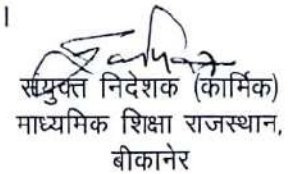 ।
संयुक्त निदेशक (कार्मिक)
माध्यमिक शिक्षा राजस्थान,
बीकानेर